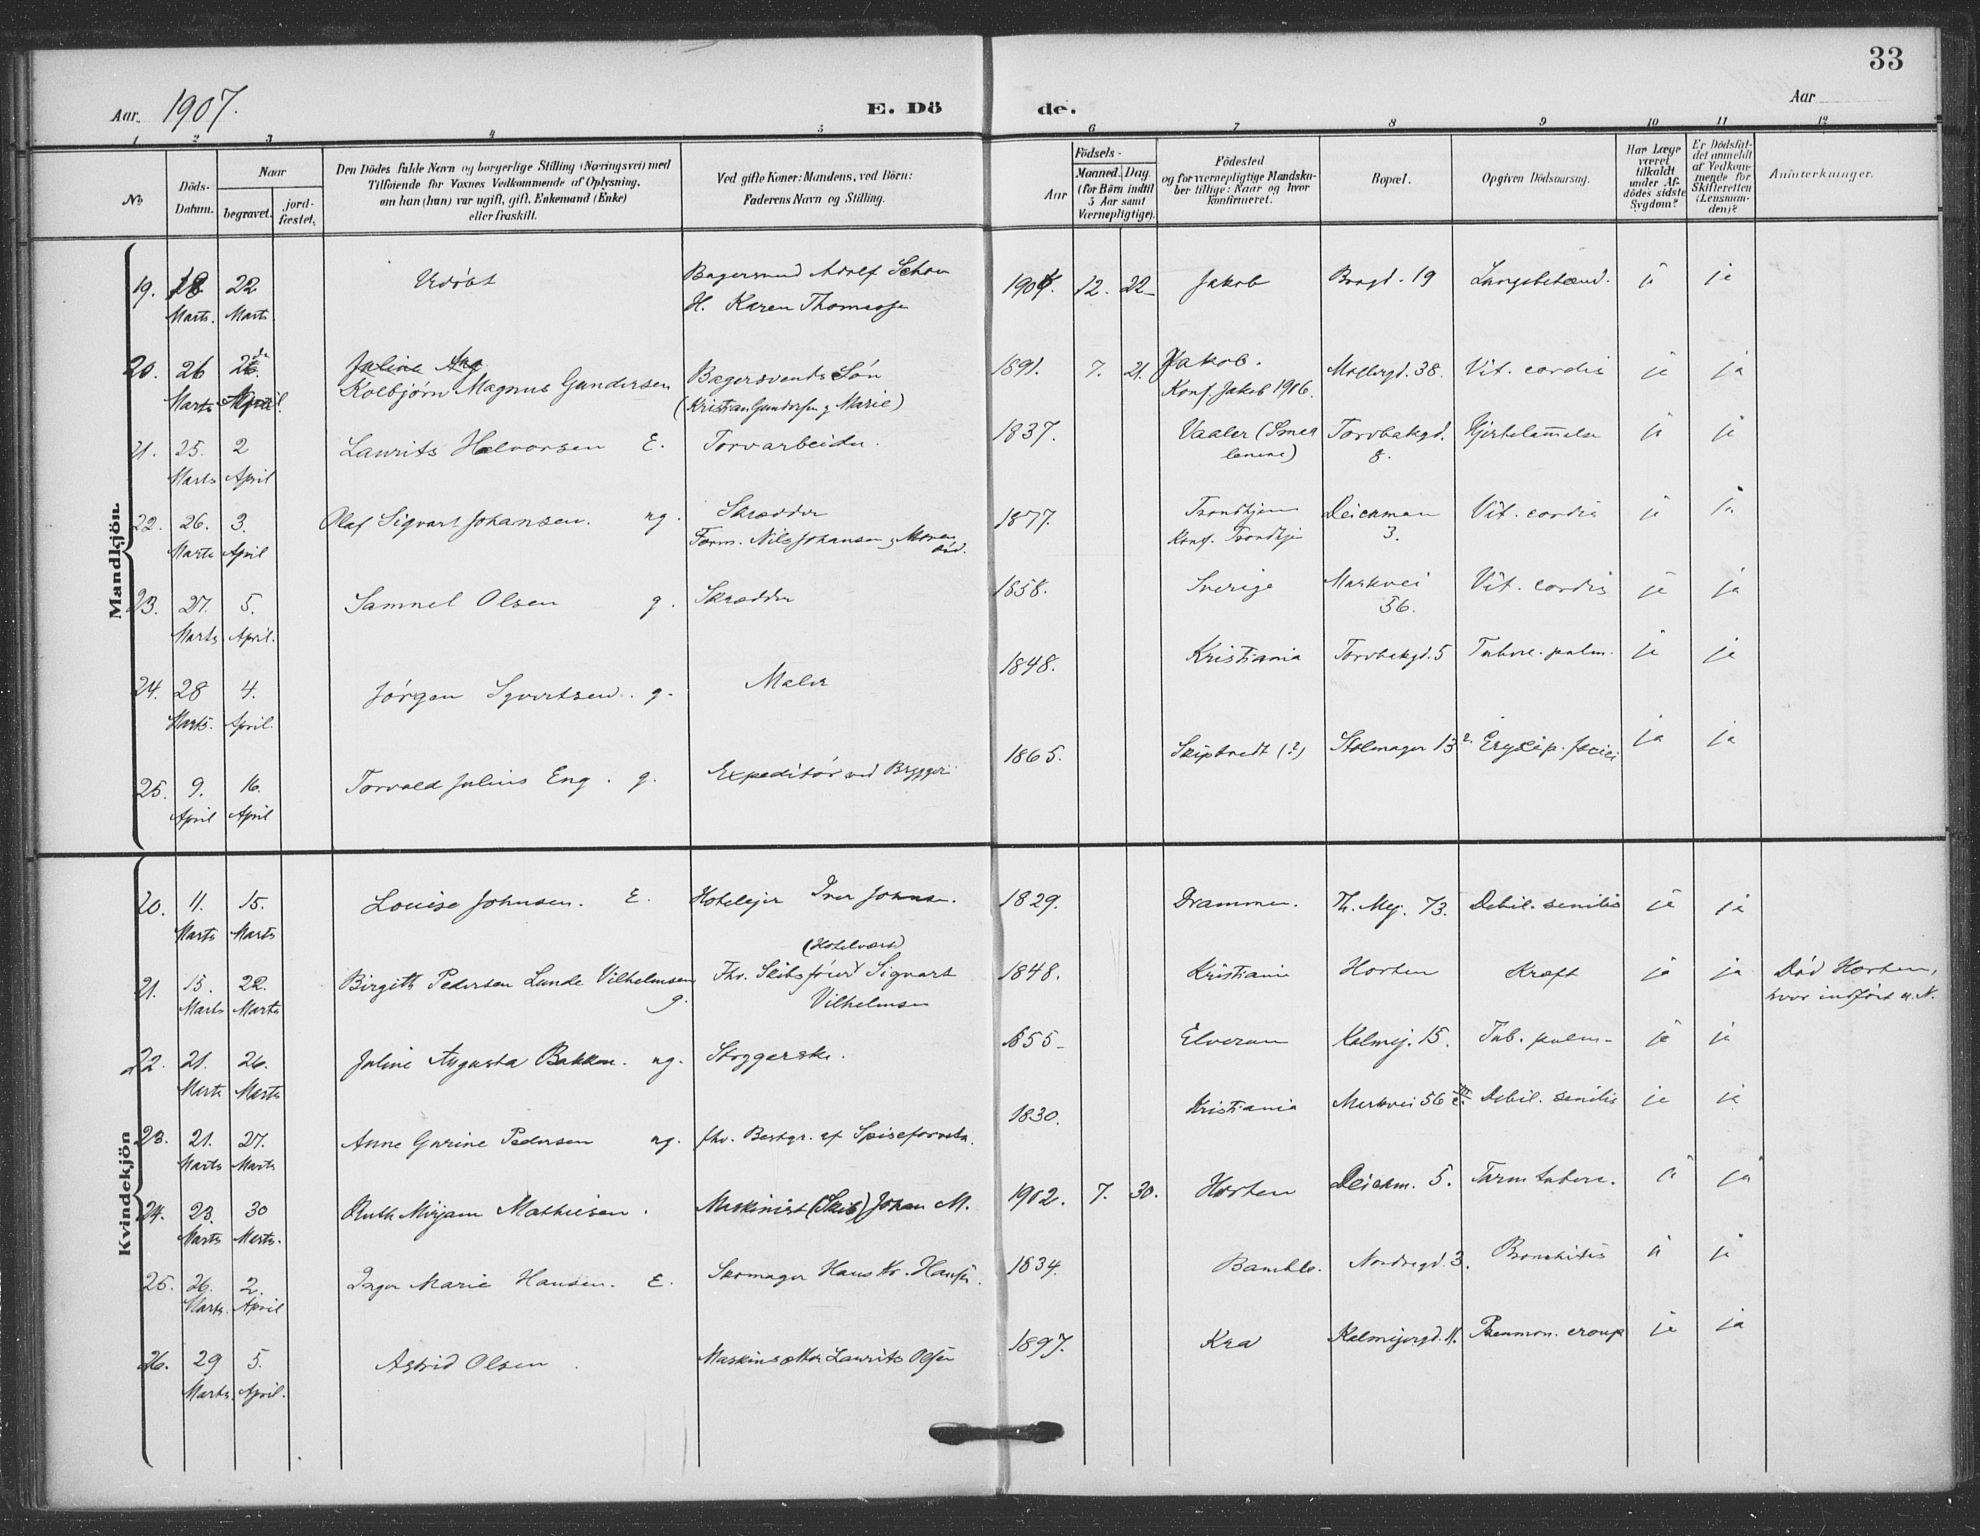 33
Aar 1907.
E. Dö
de.
Aar
1 2 3 4 5 6 7 8 9 10 11 12
№
Döds-
Datum.
Naar
begravet.
jord-
fæstet.
Den Dödes fulde Navn og borgerlige Stilling (Næringsvei) med
Tilføiende for Voxnes Vedkommende af Oplysning,
om han (hun) var ugift, gift, Enkemand (Enke)
eller fraskilt.
Ved gifte Koner: Mandens, ved Börn:
Faderens Navn og Stilling.
Födsels-
Aar
Maaned. Dag.
(for Börn indtil
5 Aar samt
Værnepligtige).
Födested
og for værnepligtige Mandska-
ber tillige: Naar og hvor
konfirmeret.
Bopæl.
Opgiven Dödsaarsag.
Har Læge
været
tilkaldt
under Af-
dödes sidste
Sygdom?
Er Dödsfal-
det anmeldt
af Vedkom-
mende for
Skifteretten
(Lensman-
den)?
Anmerkninger.
Mandkjön.
19. 18 Marts. 22 Marts. Udöbt Bagersvend Adolf Schou
H. Karen Thomassen 1906. 12. 22 Jakob Brogd. 19 Lungebetænd. ja ja
20. 26 Marts 2de April. Kolbjørn Magnus Gundersen Bagersvends Søn
(Kristian Gundersen og Marie) 1891. 7. 21. Jakob.
Konf. Jakob 1906. Møllergd. 38. Vit. cordis ja ja
21. 25. Marts 2 April Laurits Halvorsen E. Torvarbeider. 1837. Vaaler (Smaa
lenene) Torvbakgd.
8. Hjertelammelse ja ja
22. 26. Marts 3. April Olaf Sigvart Johansen. ug. Skrædder
Foræ. Nils Johansen og Maren 1877. Trondhjem
Konf. Trondhje Deichman
3. Vit. cordis ja ja
23. 27. Marts 5. April. Samuel Olsen g. Skrædder 1858. Sverige Markvei
56. Vit. cordis ja ja
24. 28 Marts. 4. April. Jørgen Syvertsen. g. Maler 1848. Kristiania Torvbakgd. 5 Tuberc. pulm. ja ja
25. 9. April 16. April Torvald Julius Eng. g. Expeditør ved Bryggeri 1865. Skiptvedt (?) Stolmager 13 2. Erysip. faciei ja ja
Kvindekjön
20. 11. Marts 15. Marts Louise Johnsen. E. Hotelejer Iver Johnse. 1829. Drammen. Th. Mej. 73. Debil. senilis ja ja
21. 15. Marts 22. Marts Birgith Pedersen Lunde Vilhelmsen g. (Hotelvært)
Fhv. Skibsfører Sigvart
Vilhelmsen 1848. Kristiania Horten Kræft ja ja Död Horten,
hvor indført u. N.
22. 21. Marts 26. Marts Juline Augusta Bakken. ug. Stryggerske. 1855 Elverum Kalmej. 15. Tub. pulm. ja ja
23. 21. Marts 27. Marts Anne Gurine Pedersen ug. fhv. Bestyr. af Spiseforretn. 1830. Kristiania Markvei 56 c. III Debil. senilis ja ja
24. 23. Marts 30 Marts. Ruth Mirjam Mathiesen. Maskinist (Skib) Johan M. 1902. 7. 30. Horten Deichm. 5. Tarmtuberc. ja ja
25. 26. Marts. 2. April Inger Marie Hansen. E. Skomager Hans Kr. Hansen. 1834. Bamble. Nordregd. 3. Bronchitis ja ja
26. 29 Marts. 5. April. Astrid Olsen. Maskinsætter Laurits Olsen 1897. Kra Kalmejergd. 11. Pneumon. croup ja ja